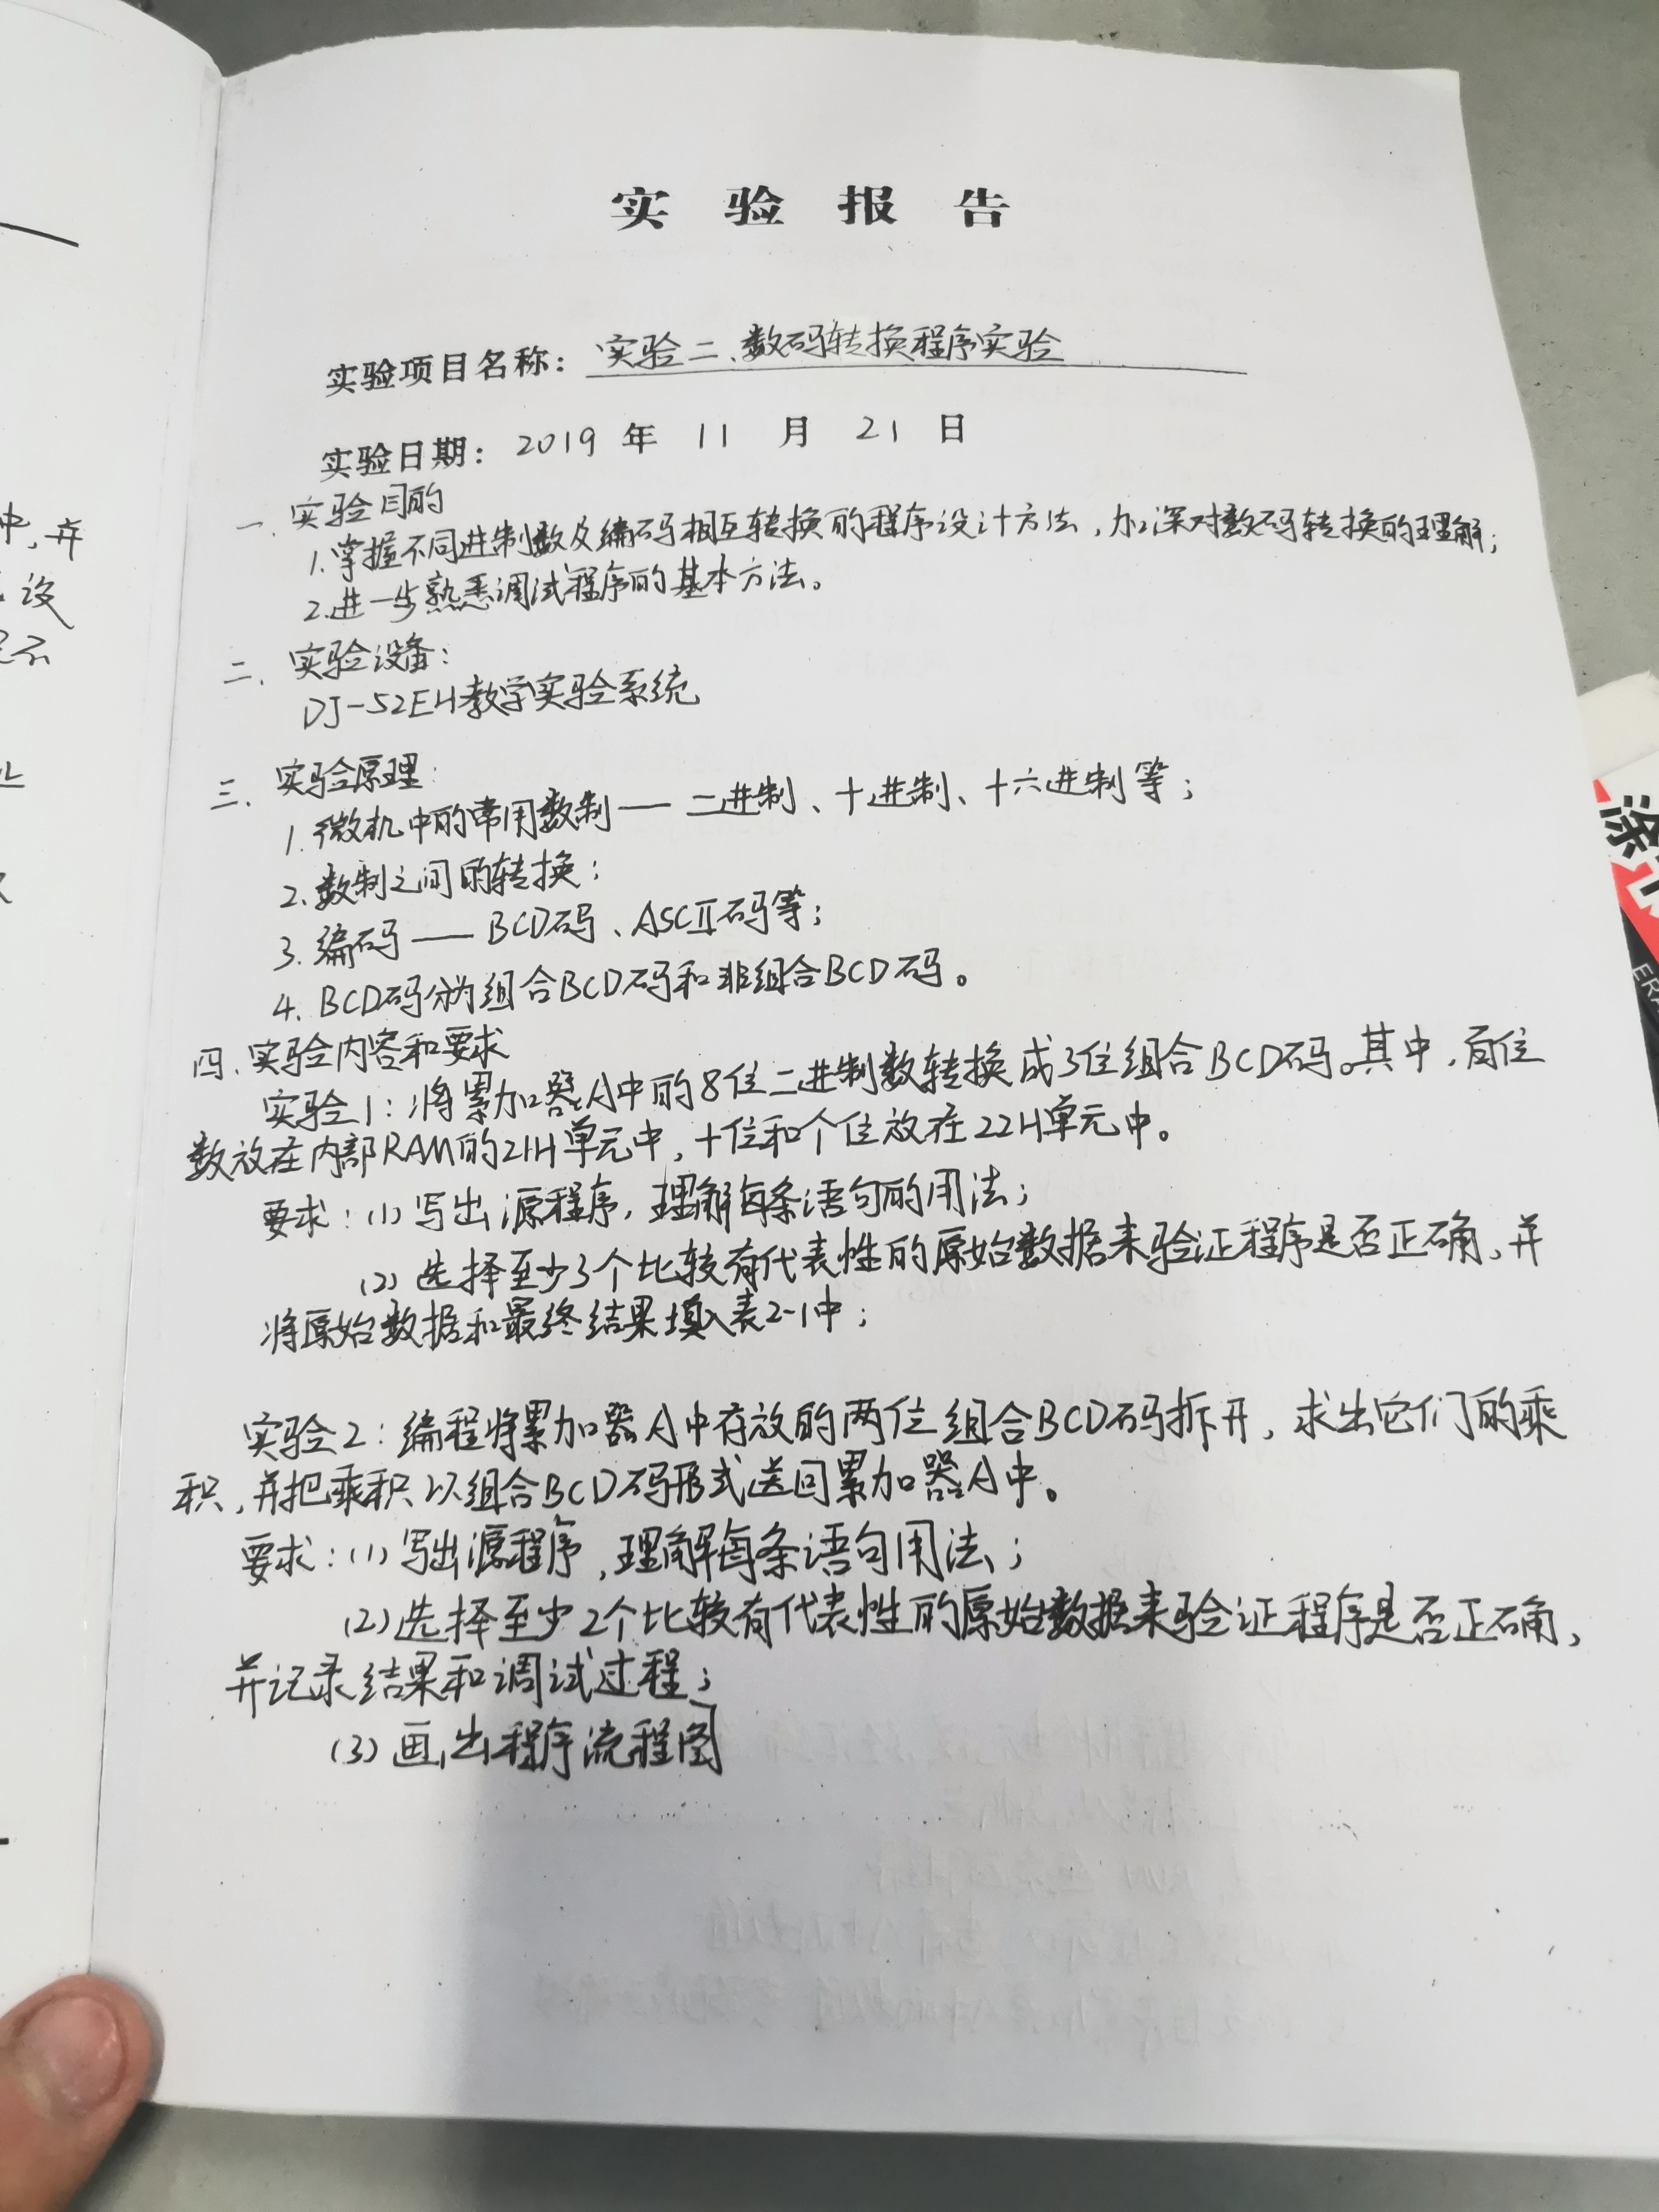 实验报告
实验项目名称：实验二、数码转换程序实验
实验日期：2019年11月21日
一、实验目的
1.掌握不同进制数及编码相互转换的程序设计方法，加深对数码转换的理解；
2.进一步熟悉调试程序的基本方法。
二、实验设备：
DJ-52EH教学实验系统
三、实验原理：
1.微机中的常用数制——二进制、十进制、十六进制等；
2.数制之间的转换；
3.编码——BCD码、ASCII码等；
4.BCD码分为组合BCD码和非组合BCD码。
四、实验内容和要求
实验1：将累加器A中的8位二进制数转换成3位组合BCD码。其中，百位
数放在内部RAM的21H单元中，十位和个位放在22H单元中。
要求：(1)写出源程序，理解每条语句的用法；
(2)选择至少3个比较有代表性的原始数据来验证程序是否正确，并
将原始数据和最终结果填入表2-1中；
实验2：编程将累加器A中存放的两位组合BCD码拆开，求出它们的乘
积，并把乘积以组合BCD码形式送回累加器A中。
要求：(1)写出源程序，理解每条语句用法；
(2)选择至少2个比较有代表性的原始数据来验证程序是否正确，
并记录结果和调试过程；
(3)画出程序流程图
中，并
设
涂
ER